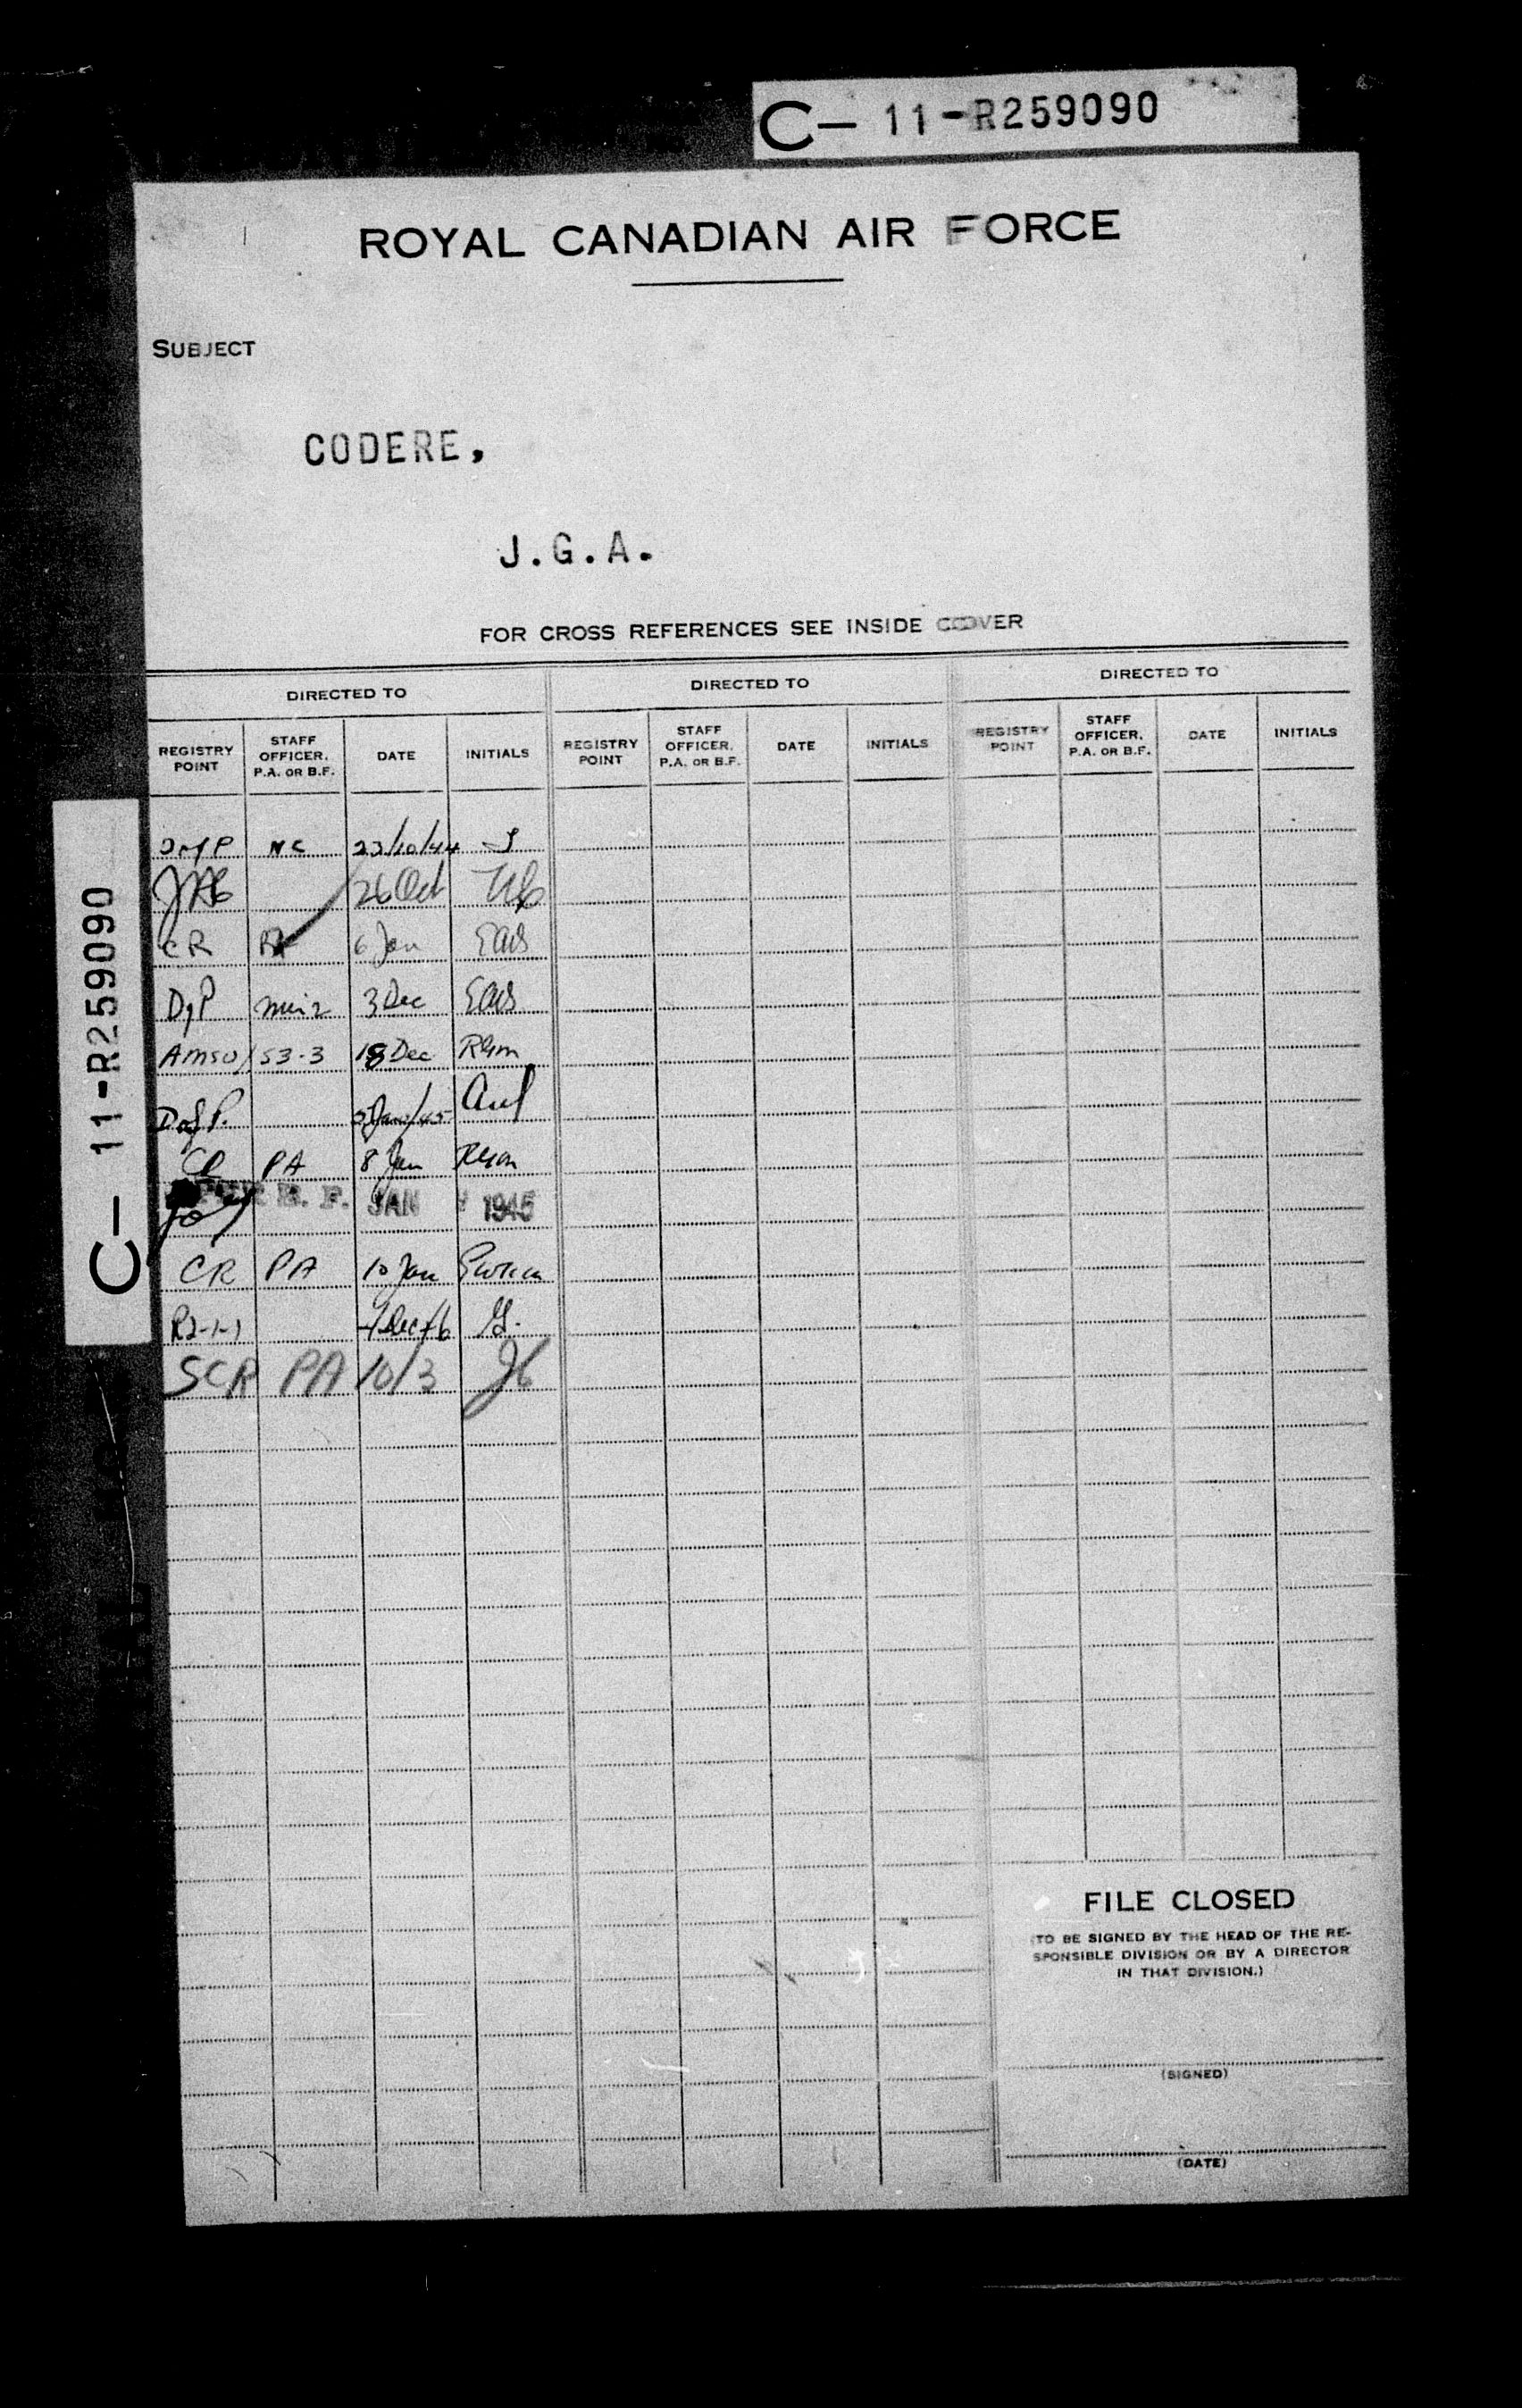 C- 11-R259090
ROYAL CANADIAN AIR FORCE
SUBJECT
CODERE,
J.G.A.
FOR CROSS REFERENCES SEE INSIDE COVER
DIRECTED TO DIRECTED TO DIRECTED TO
REGISTRY POINT STAFF OFFICER, P.A. OR B.F. DATE INITIALS REGISTRY POINT STAFF OFFICER, P.A. OR B.F. DATE INITIALS REGISTRY POINT STAFF OFFICER, P.A. OR B.F. DATE INITIALS
NC 23/10/44
26 Oct
CR PA 6 Jan
DgP 3 Dec
AMSO/S3-3 18 Dec
8 Jan
PA
B. F. JAN 1945
CR PA 10 Jan
R2-1-1
SCR PA 10/3
C- 11-R259090
FILE CLOSED
(TO BE SIGNED BY THE HEAD OF THE RE-
SPONSIBLE DIVISION OR BY A DIRECTOR
IN THAT DIVISION.)
(SIGNED)
(DATE)